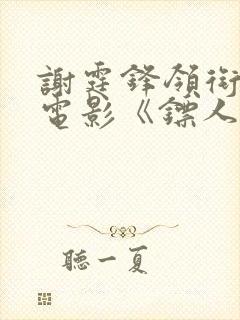 謝霆鋒領銜
電影《鏢人
聽一夏